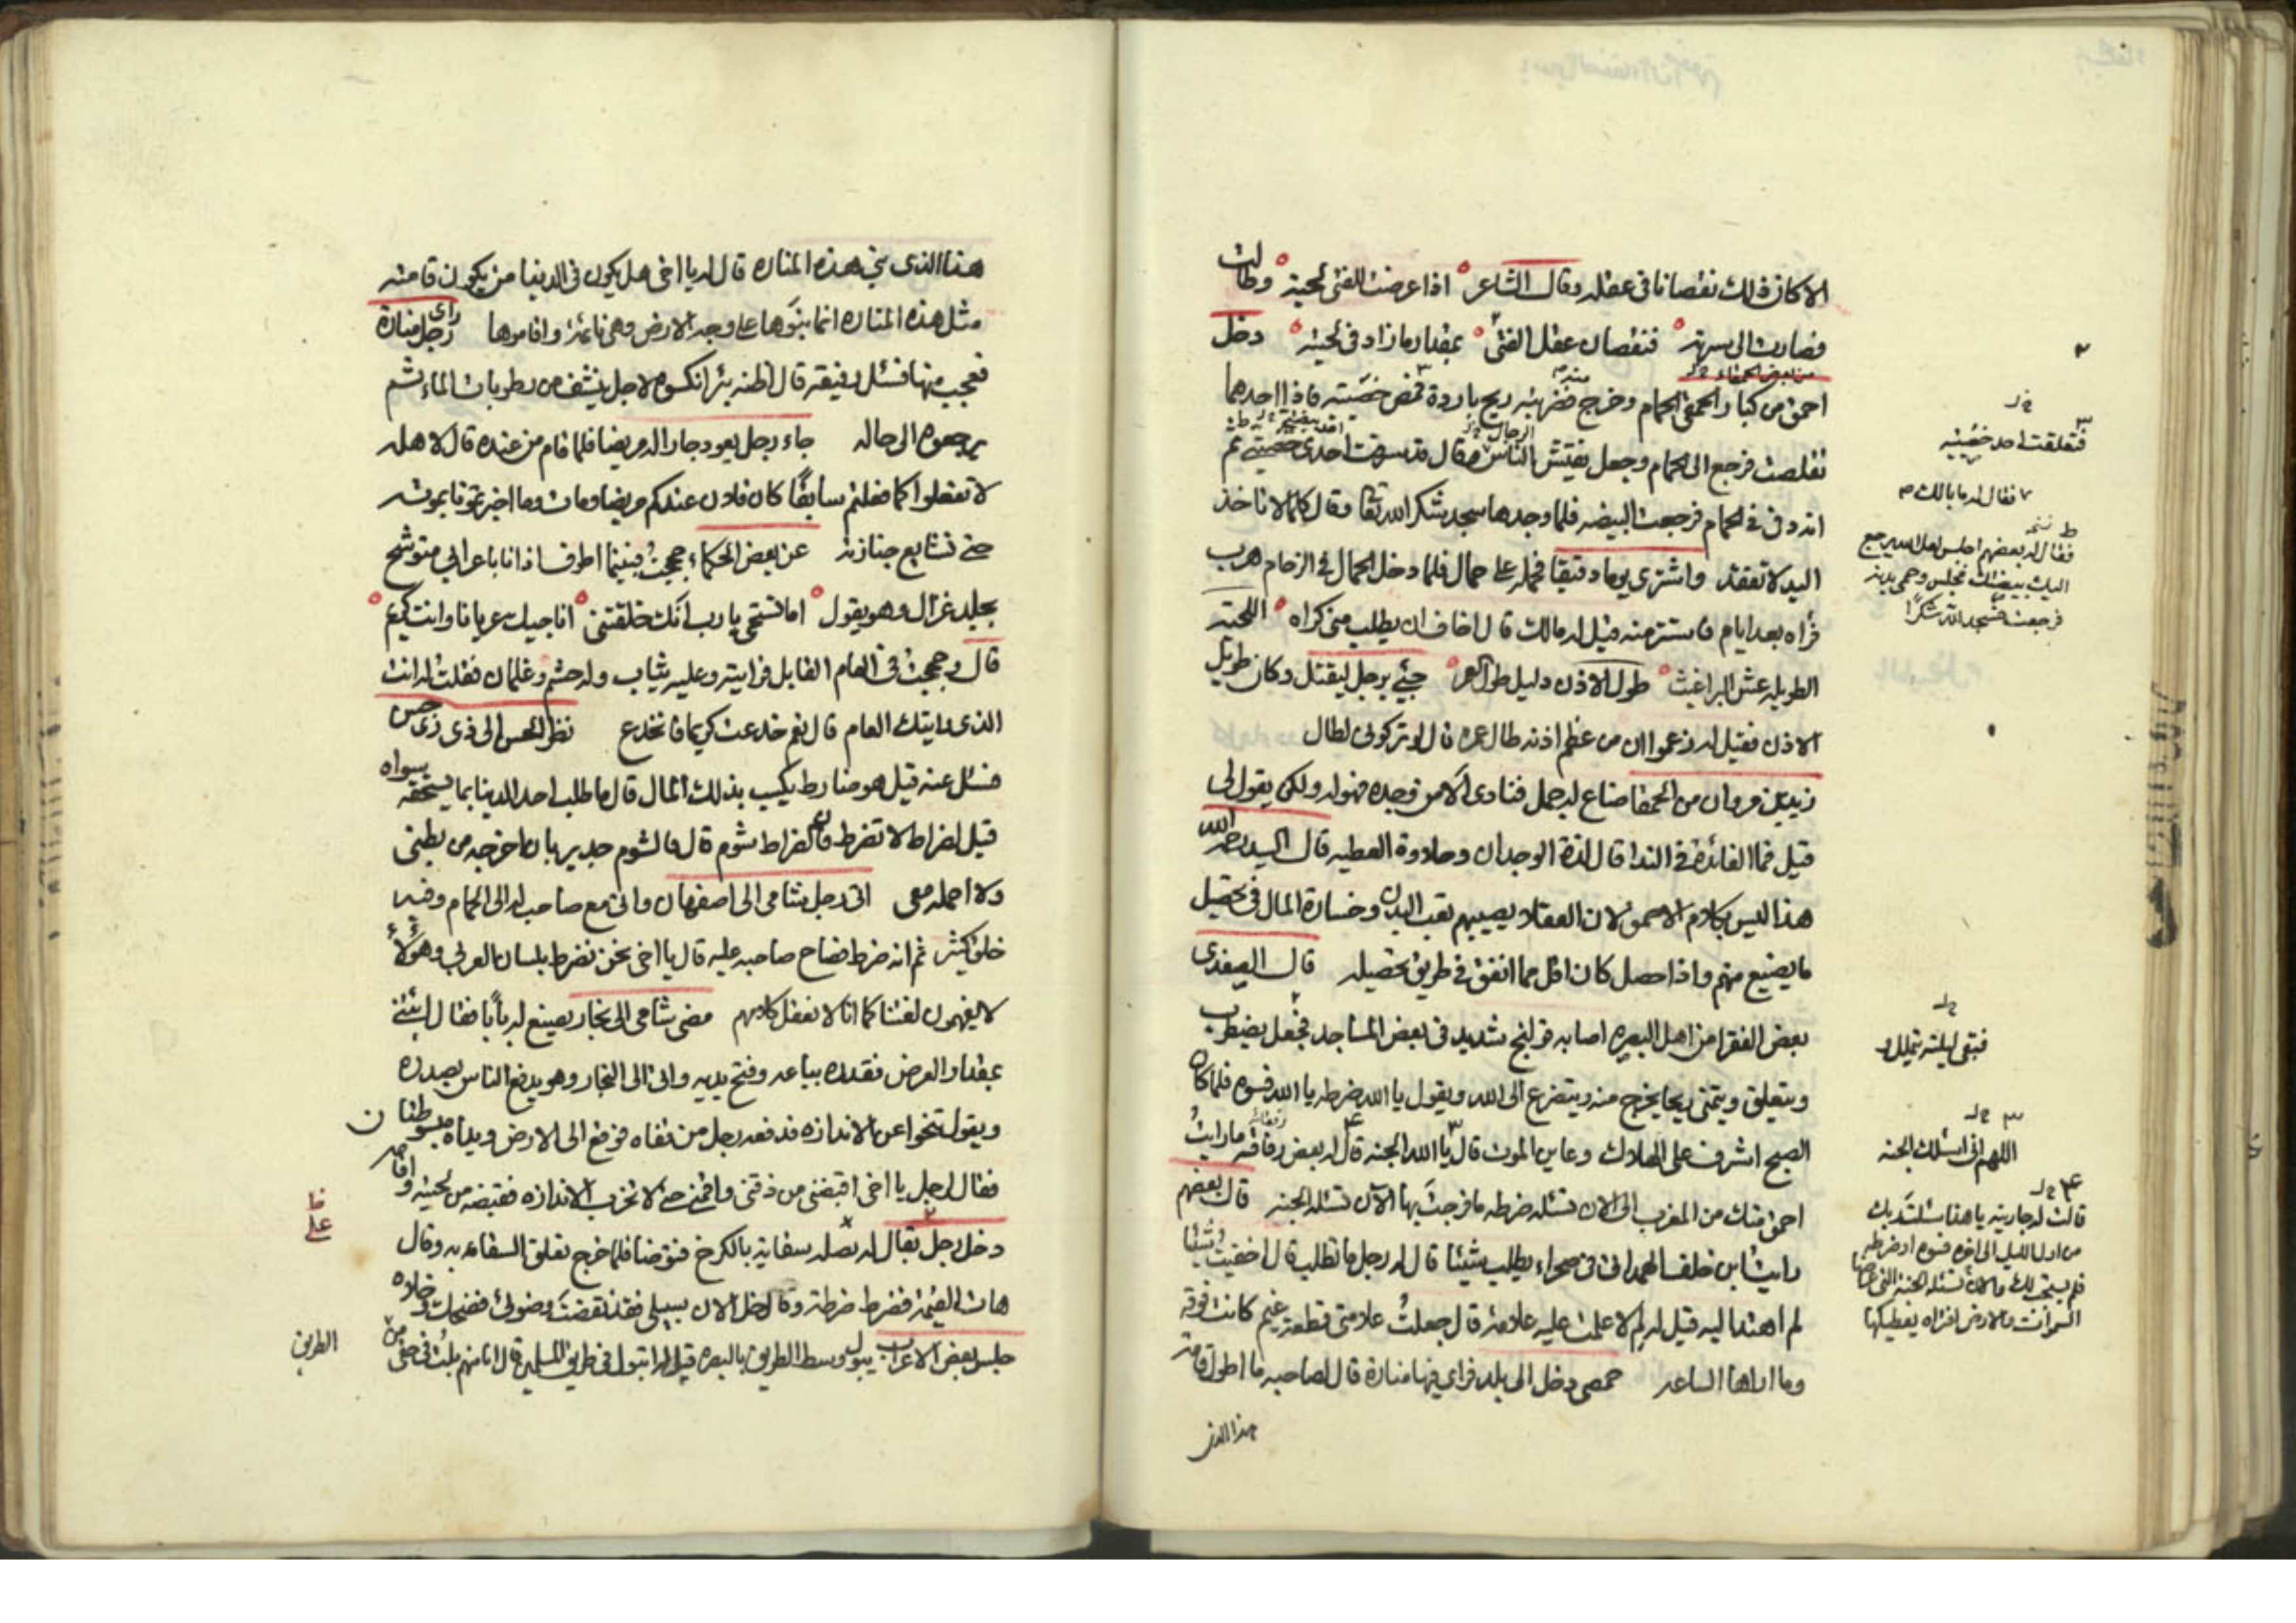 الا كان ذلك نقصانا في عقله وقال الشاعر اذا عرضت للفتى لحية وطالت
فصارت الى سرته فنقصان عقل الفتى بمقدار ما زاد في لحيته دخل
من بعض الحمقاء
احمق من كبار الحمقى الحمام وخرج فضربته ريح باردة فمص خصيته فاذا احدهما
تقلصت فرجع الى الحمام وجعل يفتش الناس فقال قد سرقت احدى خصيتي ثم
انه دفئ في الحمام فرجعت البيضه فلما وجدها سجد شكرا لله تعا وقال كلما لا تاخذ
اليد لا تفقد واشترى يوما دقيقا فحمله على حمال فلما دخل الحمال في الزحام هرب
فراه بعد ايام فاستتر منه قيل له مالك قال اخاف ان يطلب مني كراه اللحية
الطويله عش البراغيث طول الاذن دليل طول العمر جيئ برجل ليقتل وكان طويل
الاذن فقيل له زعموا ان من عظم اذنه طال عمره قال لو تركوني لطال
زيد بن مروان من الحمقا ضاع له جمل فنادى الا من وجده فهو له ولكن يقول لي
قيل فما الفائدة في الندا قال لذة الوجدان وحلاوة العطيه قال السيد رحمه الله
هذا ليس بكلام الاحمق لان العقلاء يصيبهم تعب البدن وخسارة المال في تحصيل
ما يضيع منهم واذا حصل كان اقل مما انفق في طريق تحصيله قال الصفدي
بعض الفقرا من اهل البصره اصابه قولنج شديد في بعض المساجد فجعل يضطرب
ويتعلق ويتمنى ريحا يخرج منه ويتضرع الى الله ويقول يا الله ضرطه يا الله فسوه فلما كان
الصبح اشرف على الهلاك وعاين الموت قال يا الله الجنه قال له بعض رفاقته ما رايت
احمق منك من المغرب الى الان تسئله ضرطه ما فرجت بها الآن تسئله الجنه قال بعضهم
رايت ابن خلف الهمداني في صحراء يطلب شيئا قال له رجل ما تطلب قال اخفيت شيئا
لم اهتد اليه قيل له لم لا علمت عليه علامة قال جعلت علامتي قطعة غيم كانت فوقه
وما اراها الساعه حمصي دخل الى بلد فراى فيها منارة قال لصاحبه ما اطول قامة
هذا الذي
فتقلقت احد خصيتيه
فقال له ما بالك
فقال له بعضهم اجلس لعل الله يرجع
اليك بيضتك فجلس وحمى بدنه
فرجعت فسجد لله شكرا
فبقى ليلته يتململ
اللهم اني اسئلك الجنه
قالت له جاريته يا هذا سئلت ربك
من اول الليل الى اخره فسوه او ضرطه
فلم يستجب لك والآن تسئله الجنه التي عرضها
السموات والارض افتراه يعطيكها
هذا الذي بنى هذه المناره قال له يا اخي هل يكون في الدنيا من يكون قامته
مثل هذه المناره انما بنوها على وجه الارض وهي نائمة واقاموها راى رجل منارة
فتعجب منها فسئل رفيقه قال اظنه بئرا نكسوه لاجل ينشف من رطوبات الماء ثم
يرجعوه الى حاله جاء رجل يعود جارا له مريضا فلما قام من عنده قال لاهله
لا تفعلوا كما فعلتم سابقا كان فلان عندكم مريضا ومات وما اخبرتمونا بموته
حتى نشايع جنازته عن بعض الحكماء حججت فبينما اطوف اذ انا باعرابي متوشح
بجلد غزال وهو يقول اما تستحي يا رب انك خلقتني اناجيك عريانا وانت كريم
قال وحججت في العام القابل فرايته وعليه ثياب وله حشم وغلمان فقلت له انت
الذي رايتك العام قال نعم خدعت كريما فانخدع نظر الحسن الى ذي زى حسن
فسئل عنه قيل هو ضارط يكسب بذلك المال قال ما طلب احد الدنيا بما يستحقه سواه
قيل لضراط لا تضرط فان الضراط شوم قال فالشوم جدير بان اخرجه من بطني
ولا احمله معي اتى رجل شامي الى اصفهان واتى مع صاحب له الى الحمام وفيه
خلق كثير ثم انه ضرط فصاح صاحبه عليه قال يا اخي نحن نضرط بلسان العربي وهؤلاء
لا يفهمون لغتنا كما انا لا نعقل كلامهم مضى شامي الى نجار يصنع له بابا فقال ائتني
بمقدار العرض فقدره بباعه وفتح يديه واتى الى النجار وهو يدفع الناس بصدره
ويقول تنحوا عن الاندازه فدفعه رجل من قفاه فوقع الى الارض ويداه مبسوطتان
فقال لرجل يا اخي اقبضني من ذقني واقمني حتى لا تخرب الاندازه فقبضه من لحيته واقامه
دخل رجل يقال له بصله سقاية بالكرخ فتوضا فلما خرج تعلق السقاء به وقال
هات القيمة فضرط ضرطة وقال خل الان سبيلي فقد نقضت وضوئي فضحك وخلاه
جلس بعض الاعراب يبول وسط الطريق بالبصره قيل له اتبول في طريق المسلمين قال انا منهم بلت في حقي من
الطريق